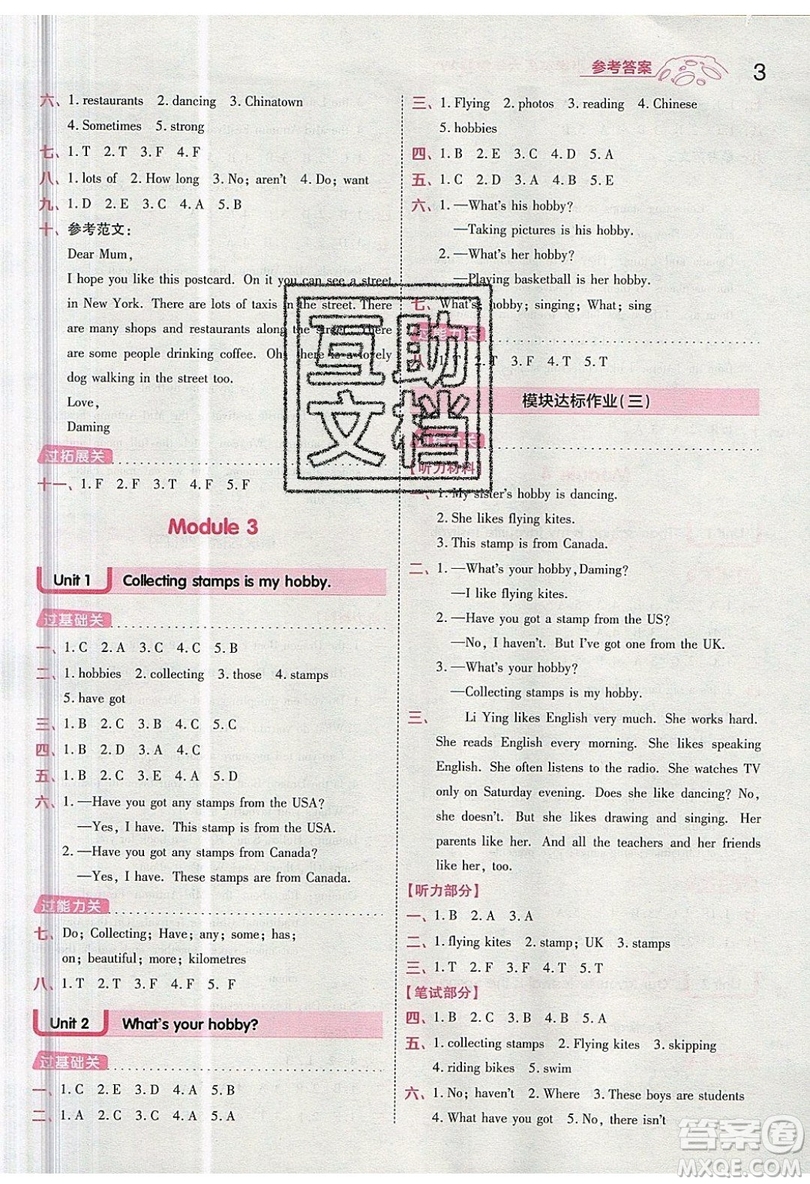 参考答案 3
六、1. restaurants 2. dancing 3. Chinatown
4. Sometimes 5. strong
七、1. T 2. T 3. F 4. F
八、1. lots of 2. How long 3. No; aren't 4. Do; want
九、1. D 2. C 3. E 4. A 5. B
十、参考范文:
Dear Mum,
I hope you like this postcard. On it you can see a street
in New York. There are lots of taxis in the street. There
are many shops and restaurants along the street. There
are some people drinking coffee. Oh, there is a lovely
dog walking in the street too.
Love,
Daming
过拓展关
十一、1. F 2. F 3. T 4. T 5. F
Module 3
Unit 1 Collecting stamps is my hobby.
过基础关
一、1. C 2. A 3. C 4. C 5. B
二、1. hobbies 2. collecting 3. those 4. stamps
5. have got
三、1. B 2. C 3. B 4. C 5. C
四、1. B 2. D 3. A 4. C
五、1. B 2. C 3. E 4. A 5. D
六、1. —Have you got any stamps from the USA?
—Yes, I have. This stamp is from the USA.
2. —Have you got any stamps from Canada?
—Yes, I have. These stamps are from Canada.
过能力关
七、Do; Collecting; Have; any; some; has;
on; beautiful; more; kilometres
八、1. T 2. T 3. F 4. F 5. F
Unit 2 What's your hobby?
过基础关
一、1. C 2. E 3. D 4. A 5. B
二、1. A 2. C 3. C 4. A 5. A
三、1. Flying 2. photos 3. reading 4. Chinese
5. hobbies
四、1. B 2. E 3. C 4. D 5. A
五、1. C 2. D 3. A 4. B 5. E
六、1. —What's his hobby?
—Taking pictures is his hobby.
2. —What's her hobby?
—Playing basketball is her hobby.
七、What's; hobby; singing; What; sing
过能力关
八、1. T 2. F 3. F 4. F 5. T
模块达标作业(三)
【听力材料】
一、1. My sister's hobby is dancing.
2. She likes flying kites.
3. This stamp is from Canada.
二、1. —What's your hobby, Daming?
—I like flying kites.
2. —Have you got a stamp from the US?
—No, I haven't. But I've got one from the UK.
3. —What's your hobby?
—Collecting stamps is my hobby.
三、Li Ying likes English very much. She works hard.
She reads English every morning. She likes speaking
English. She often listens to the radio. She watches TV
only on Saturday evening. Does she like dancing? No,
she doesn't. But she likes drawing and singing. Her
parents like her. And all the teachers and her friends
like her, too.
【听力部分】
一、1. B 2. A 3. A
二、1. flying kites 2. stamp; UK 3. stamps
三、1. T 2. F 3. F 4. T 5. T
【笔试部分】
四、1. B 2. A 3. C 4. B 5. A
五、1. collecting stamps 2. Flying kites 3. skipping
4. riding bikes 5. swim
六、1. No; haven't 2. Where 3. These boys are students
4. What have you got 5. No, there isn't
互助
文档
答案圈
MXQE.COM